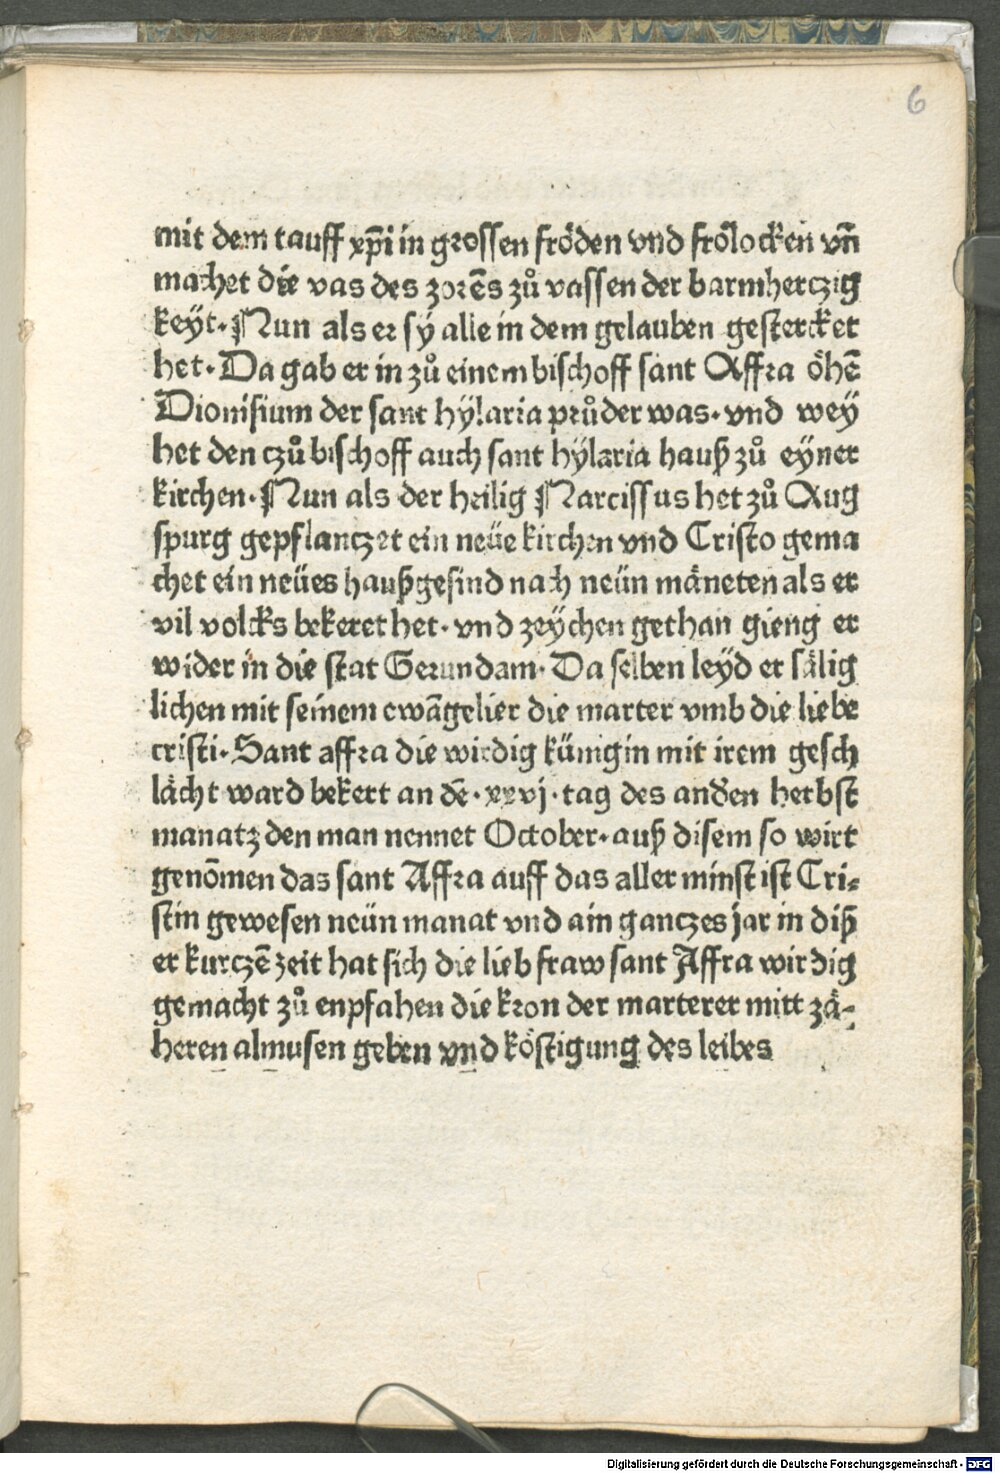 6
mit dem tauff xp̄i in grossen fröden vnd frölocken vn̄
machet die vas des zorēs zů vassen der barmherczig
keyt. Nun als er sy alle in dem gelauben gestercket
het. Da gab er in zů einem bischoff sant Affra öhē
Dionisium der sant hylaria průder was. vnd wey
het den czů bischoff auch sant hylaria hauß zů eyner
kirchen. Nun als der heilig Narcissus het zů Aug
spurg gepflanczet ein neüe kirchen vnd Cristo gema
chet ein neües haußgesind nach neün mäneten als er
vil volcks bekeret het. vnd zeychen gethan gieng er
wider in die stat Gerundam. Da selben leyd er sälig
lichen mit seinem ewāgelier die marter vmb die liebe
cristi. Sant affra die wirdig künigin mit irem gesch
lächt ward bekert an dē .xxvj. tag des anđen herbst
manatz den man nennet October. auß disem so wirt
genōmen das sant Affra auff das aller minst ist Cri⸗
stin gewesen neün manat vnd ain ganczes jar in diß
er kurczē zeit hat sich die lieb fraw sant Affra wirdig
gemacht zů enpfahen die kron der marterer mitt zä⸗
heren almusen geben vnd köstigung des leibes
Digitalisierung gefördert durch die Deutsche Forschungsgemeinschaft - DFG